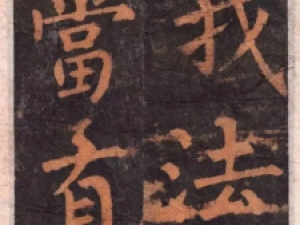 我法
當有